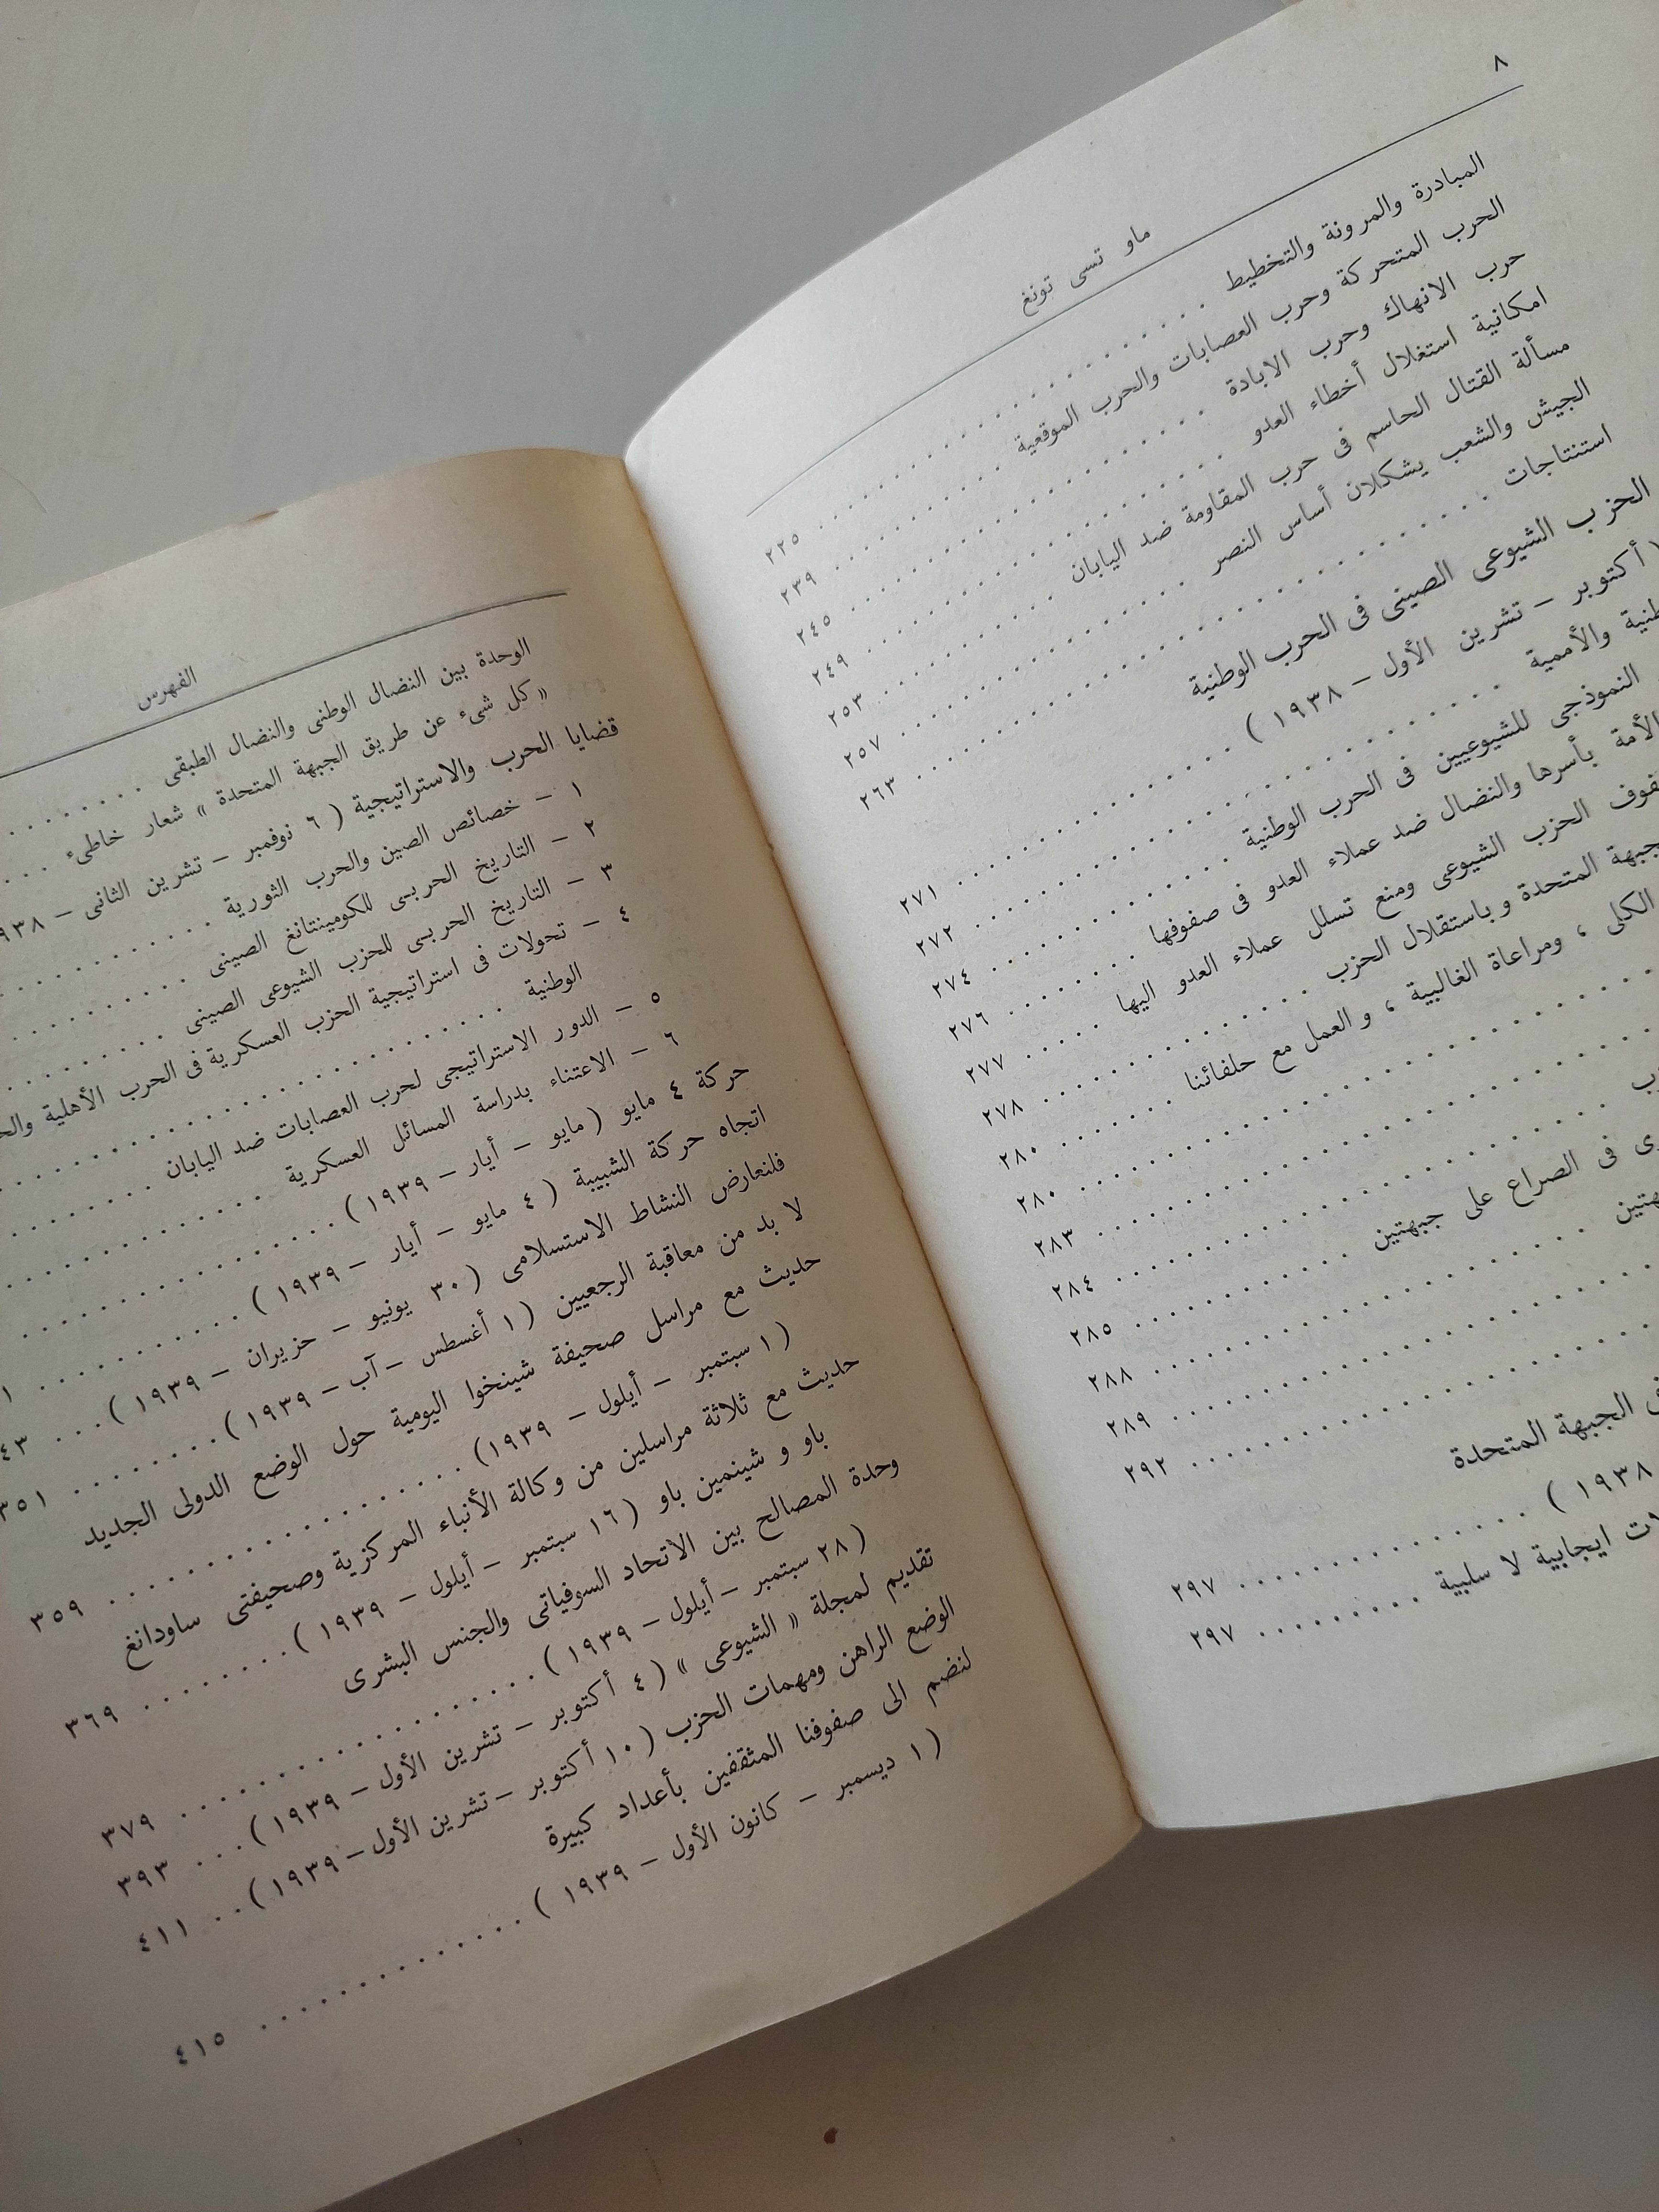 ٨
ماو تسى تونغ
المبادرة والمرونة والتخطيط . . . . . . . . . . ٢٢٥
الحرب المتحركة وحرب العصابات والحرب الموقعية . . . . . . ٢٣٩
حرب الانهاك وحرب الابادة . . . . . . . . . . ٢٤٥
امكانية استغلال أخطاء العدو . . . . . . . . . . ٢٤٩
مسألة القتال الحاسم فى حرب المقاومة ضد اليابان . . . . . . ٢٥٣
الجيش والشعب يشكلان أساس النصر . . . . . . . . ٢٥٧
استنتاجات . . . . . . . . . . . . . . ٢٦٣
الحزب الشيوعى الصينى فى الحرب الوطنية
( أكتوبر – تشرين الأول – ١٩٣٨ ) . . . . . . . . ٢٧١
والأممية . . . . . . . . . . . . ٢٧٢
النموذجى للشيوعيين فى الحرب الوطنية . . . . . . . . ٢٧٤
الأمة بأسرها والنضال ضد عملاء العدو فى صفوفها . . . . . . ٢٧٦
الحزب الشيوعى ومنع تسلل عملاء العدو اليها . . . . . ٢٧٧
المتحدة وباستقلال الحزب . . . . . . . . ٢٧٨
الكلى ، ومراعاة الغالبية ، والعمل مع حلفائنا . . . . . . ٢٨٠
. . . . . . . . . . . . ٢٨٠
. . . . . . . . . . . . ٢٨٣
. . . . . . . . . . . . ٢٨٤
فى الصراع على جبهتين . . . . . . . . ٢٨٥
. . . . . . . . . . . . ٢٨٨
. . . . . . . . . . . . ٢٨٩
. . . . . . . . . . . . ٢٩٢
الجبهة المتحدة
١٩٣٨ ) . . . . . . . . . . . . ٢٩٧
ايجابية لا سلبية . . . . . . . . ٢٩٧
الفهرس
الوحدة بين النضال الوطنى والنضال الطبقى . . . . . . .
« كل شىء عن طريق الجبهة المتحدة » شعار خاطىء . . . .
قضايا الحرب والاستراتيجية ( ٦ نوفمبر – تشرين الثانى –
١ – خصائص الصين والحرب الثورية . . . . . . . .
٢ – التاريخ الحربى للكومينتانغ الصينى . . . . . . .
٣ – التاريخ الحربى للحزب الشيوعى الصينى . . . . . .
٤ – تحولات فى استراتيجية الحزب العسكرية فى الحرب الأهلية
الوطنية . . . . . . . . . . . .
٥ – الدور الاستراتيجى لحرب العصابات ضد اليابان . . . . .
٦ – الاعتناء بدراسة المسائل العسكرية . . . . . . . .
حركة ٤ مايو ( مايو – أيار – ١٩٣٩ ) . . . . . . . .
اتجاه حركة الشبيبة ( ٤ مايو – أيار – ١٩٣٩ ) . . . . . .
فلنعارض النشاط الاستسلامى ( ٣٠ يونيو – حزيران – ١٩٣٩ ) . . .
لا بد من معاقبة الرجعيين ( ١ أغسطس – آب – ١٩٣٩ ) . . . . ٣٥١
حديث مع مراسل صحيفة شينخوا اليومية حول الوضع الدولى الجديد
( ١ سبتمبر – أيلول – ١٩٣٩ ) . . . . . . . . ٣٥٩
حديث مع ثلاثة مراسلين من وكالة الأنباء المركزية وصحيفتى ساودانغ
باو و شينمين باو ( ١٦ سبتمبر – أيلول – ١٩٣٩ ) . . . . . ٣٦٩
وحدة المصالح بين الاتحاد السوفياتى والجنس البشرى
( ٢٨ سبتمبر – أيلول – ١٩٣٩ ) . . . . . . . . ٣٧٩
تقديم لمجلة « الشيوعى » ( ٤ أكتوبر – تشرين الأول – ١٩٣٩ ) . . . ٣٩٣
الوضع الراهن ومهمات الحزب ( ١٠ أكتوبر – تشرين الأول – ١٩٣٩ ) . . ٤١١
لنضم الى صفوفنا المثقفين بأعداد كبيرة
( ١ ديسمبر – كانون الأول – ١٩٣٩ ) . . . . . . . . ٤١٥